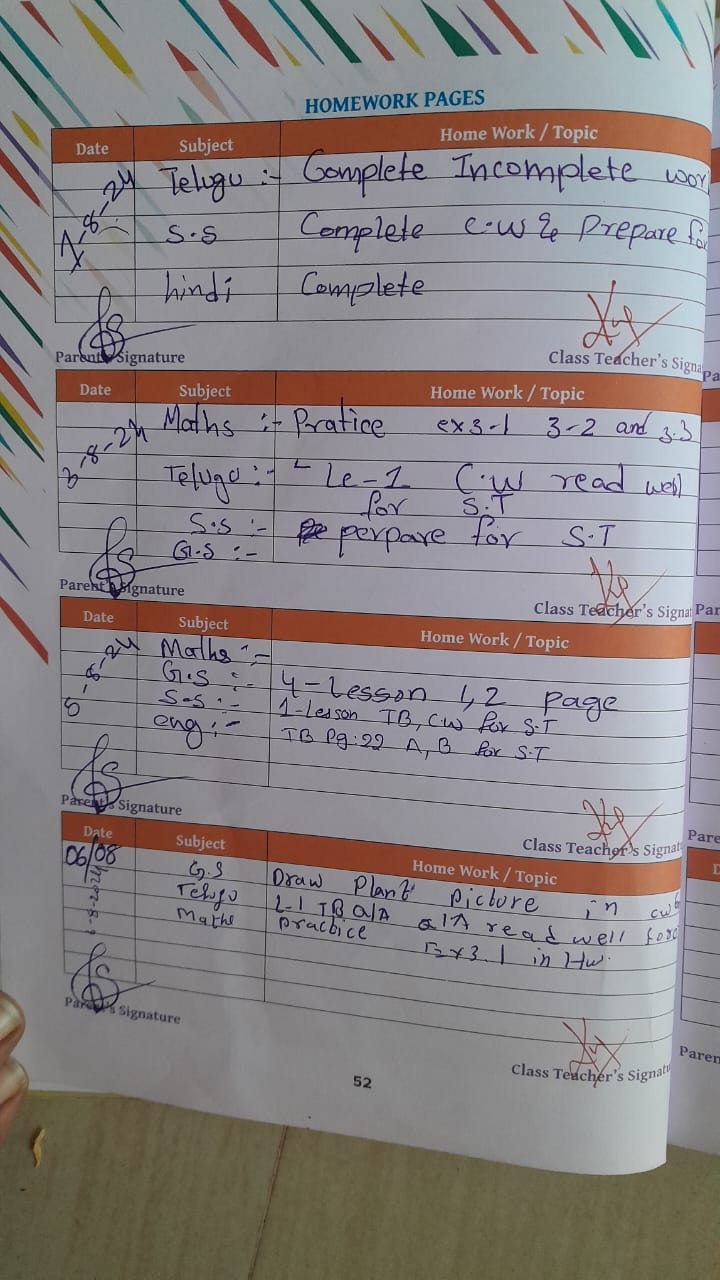 HOMEWORK PAGES
Date Subject Home Work / Topic
-8-24 Telugu :- Complete Incomplete
S.S Complete C.W & Prepare
hindi Complete
Parent's Signature Class Teacher's
Date Subject Home Work / Topic
3-8-24 Maths :- Pratice ex3-1 3-2 and 3.3
Telugu :- Le-1 C.W read well
for S.T
S.S :- perpare for S.T
G.S :-
Parent's Signature Class Teacher's
Date Subject Home Work / Topic
5-8-24 Maths :-
G.S :- 4-Lesson 1,2 page
S.S :- 1-Lesson TB, CW for S.T
eng :- TB Pg:22 A, B for S.T
Parent's Signature Class Teacher's
Date Subject Home Work / Topic
06/08 G.S Draw Plant picture in
Telugu L-1 TB Q/A Q/A read well
Maths practice Ex3.1 in Hw.
Parent's Signature Class Teacher's
52